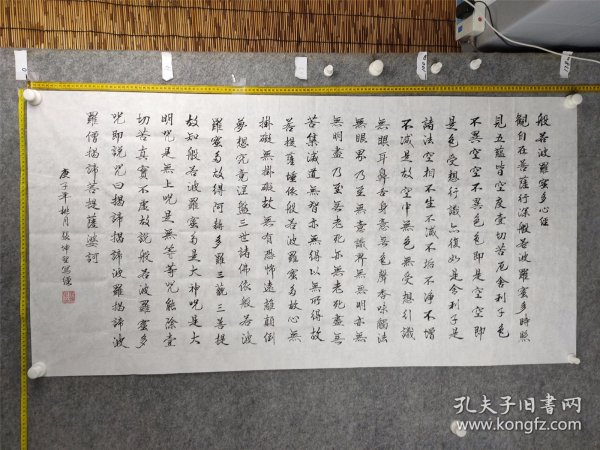 般若波羅蜜多心經
觀自在菩薩行深般若波羅蜜多時照
見五蘊皆空度壹切苦厄舍利子色
不異空空不異色色即是空空即
是色受想行識亦復如是舍利子是
諸法空相不生不滅不垢不淨不增
不減是故空中無色無受想行識
無眼耳鼻舌身意無色聲香味觸法
無眼界乃至無意識界無無明亦無
無明盡乃至無老死亦無老死盡無
苦集滅道無智亦無得以無所得故
菩提薩埵依般若波羅蜜多故心無
掛礙無掛礙故無有恐怖遠離顛倒
夢想究竟涅盤三世諸佛依般若波
羅蜜多故得阿耨多羅三藐三菩提
故知般若波羅蜜多是大神咒是大
明咒是無上咒是無等等咒能除壹
切苦真實不虛故說般若波羅蜜多
咒即說咒曰揭諦揭諦波羅揭諦波
羅僧揭諦菩提薩婆訶
庚子年桃月張坤
孔夫子旧书网
www.kongfz.com